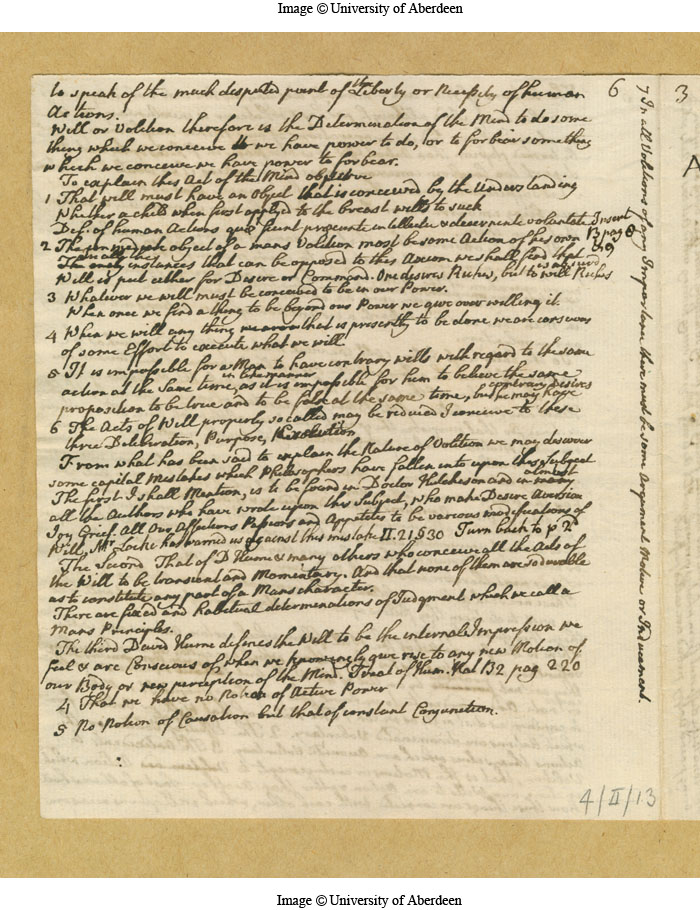 Image © University of Aberdeen
6
3
to speak of the much disputed point of the Liberty or Necessity of human
Actions.
Will or Volition therefore is the Determination of the Mind to do some
thing which we conceive we have power to do, or to forbear something
which we conceive we have power to forbear.
To explain this Act of the Mind observe
1 That will must have an Object that is conceived by the Understanding
Whether a child when first applyd to the breast wills to suck
Def. of human Actions quæ fiunt procunte intellectu & decernente voluntate Insert
2 The immediate object of a mans Volition most be some Action of his own B pag 8
& 9
instances that can be opposed to this Axiom we shall find that
is absurd
Will is put either for Desire or Command. One desires Rufus, but to will Rufus
3 Whatever we will must be conceived to be in our Power.
When once we find a thing to be beyond our Power we give over willing it
4 When we will any thing that is presently to be done we are conscious
of some Effort to execute what we will
5 It is impossible for a Man to have contrary wills with regard to the same
in like manner
action at the same time, as it is impossible for him to believe the same
contrary desires
proposition to be true and to be false at the same time, but he may have
6 The Acts of Will properly so called may be reduced I conceive to these
three Deliberation, Purpose, Resolution
From what has been said to explain the Nature of Volition we may discover
some capital Mistakes which Philosophers have fallen into upon this Subject
almost
The first I shall Mention, is to be found in Doctor Hutcheson and in many
all the Authors who have wrote upon this Subject, who make Desire Aversion
Joy Grief. All Our Affections Passions and Appetites to be various modifications of
Will, Mr Locke has warned us against this mistake II. 21, § 30 Turn back to p 2d
The Second That of D Hume & many others who conceive all the Acts of
the Will to be transient and Momentary. And that none of them are so durable
as to constitute any part of a Mans character.
There are fixed and habitual determinations of Judgment which we call a
Mans Principles.
The third David Hume defines the Will to be the internal Impression we
feel & are Conscious of when we knowingly give rise to any new Motion of
our Body or new perception of the Mind. Treat of Hum. Nat B2 pag 220
4 That we have no Notion of Active Power
5 No Notion of Causation but that of constant Conjunction.
7 In all Volitions of any Importance there must be some Argument Motive or Inducement.
A
4/II/13
Image © University of Aberdeen